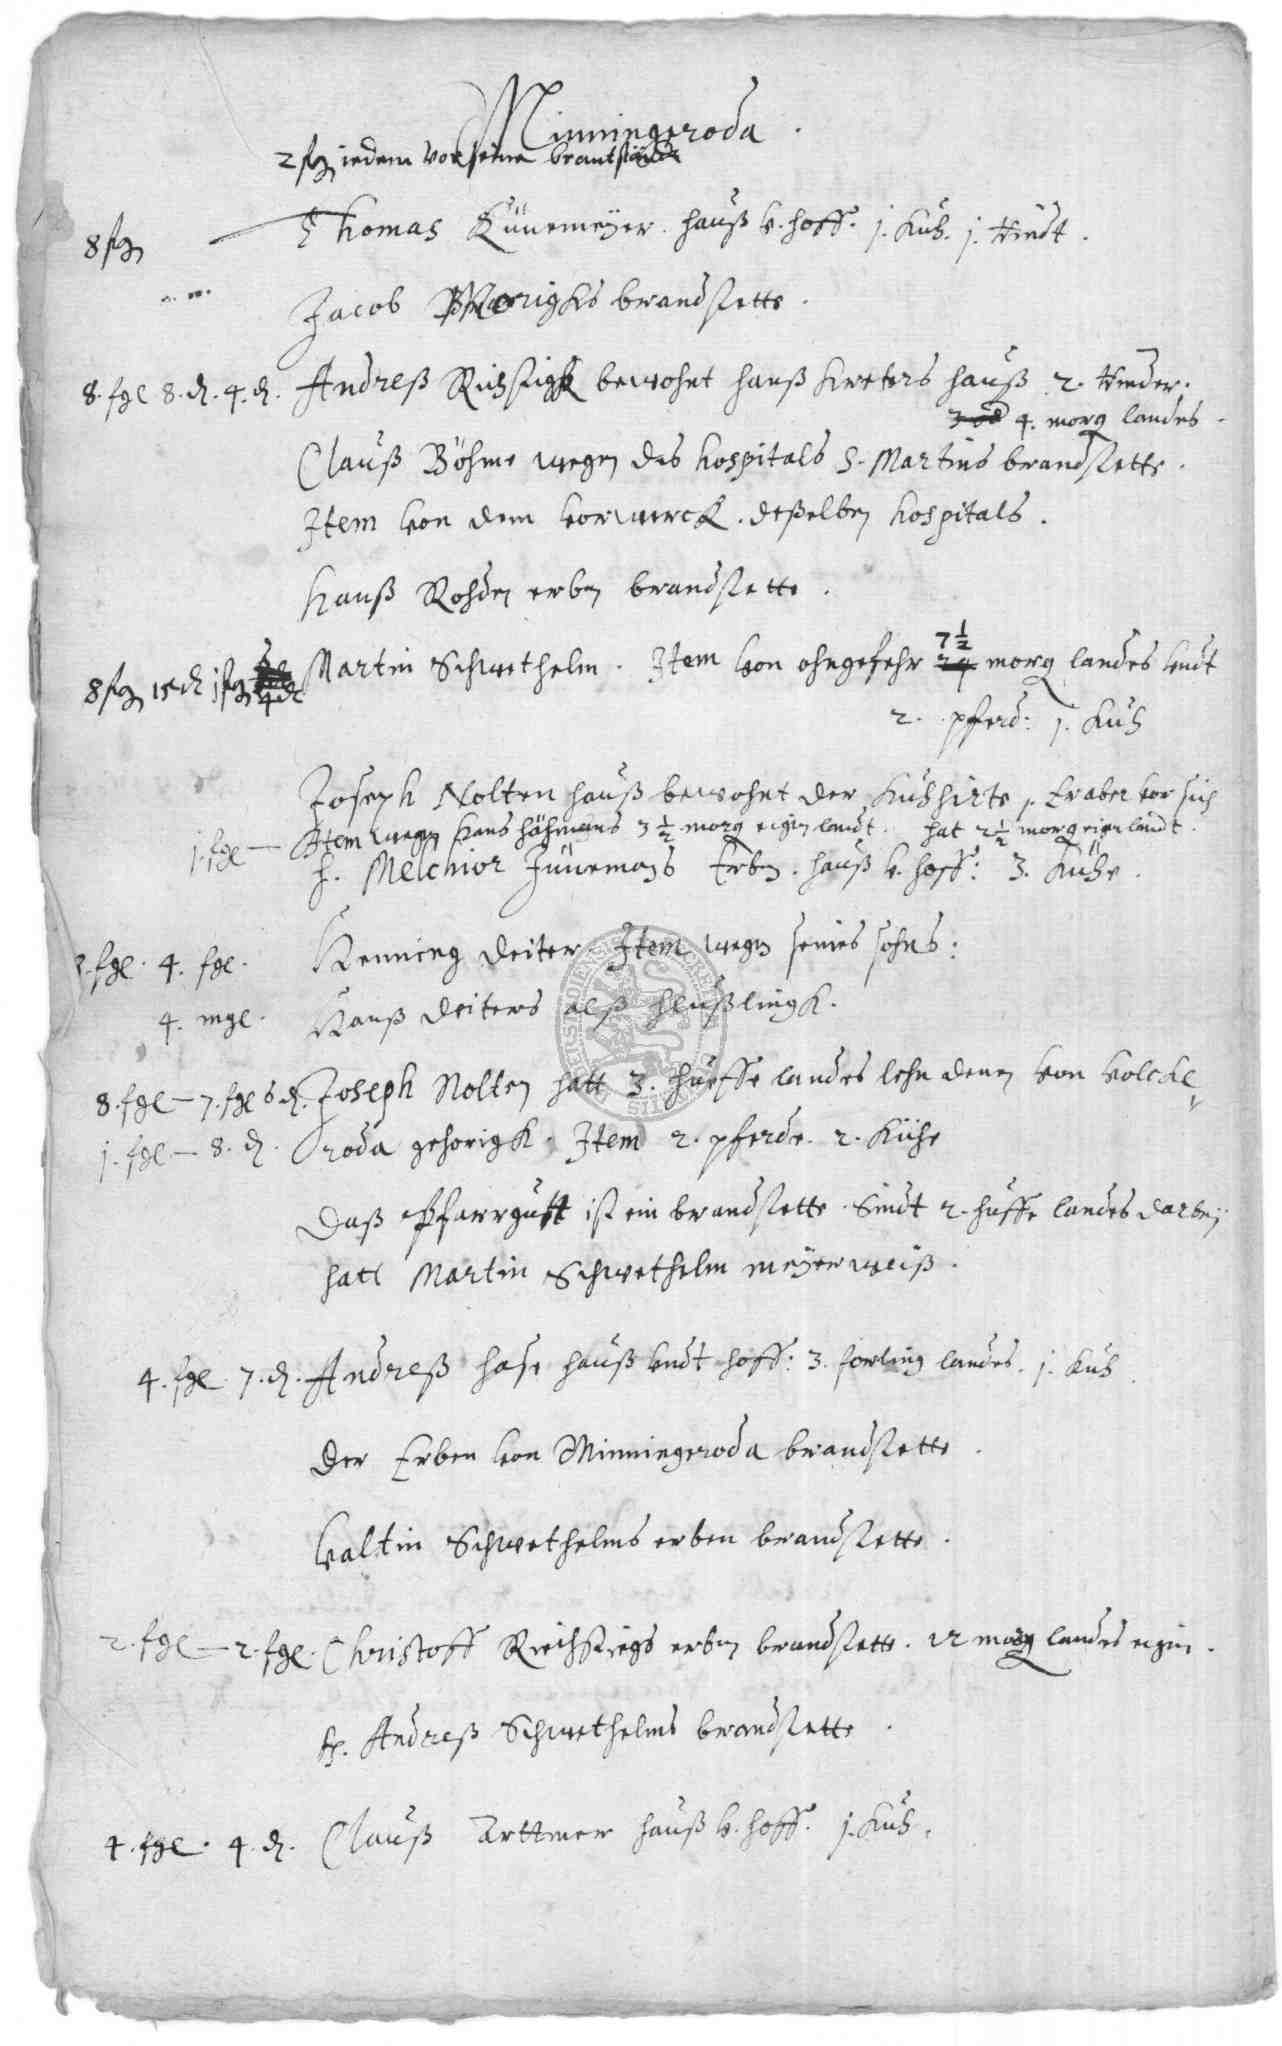 Minningeroda.
2 fg iedem vor seine brantstände
8 fg Thomas Künemeÿer. hauß v. hoff. j. Kuh. j. Rindt.
Jacob brandstette.
8. fgl 8. d. 4. d. Andreß bewohnt hanß hauß 2. Rinder.
4. morg landes
Clauß Böhme wegen des hospitals S. Martins brandstette.
Item von dem vorwerck. deßelben hospitals.
Hanß Rohden erben brandstette.
8 fg 15 d j fg Martin Schwethelm. Item von ohngefehr 7 1/2 morg landes vndt
2. pferd: j. Kuh
Joseph Nolten hauß bewohnt der Kuhhirte, Er aber vor sich
Item wegen Hans 3 1/2 morg eigen landt. hat 2 1/2 morg eigen landt.
j. fgl — H. Melchior Jünemans Erben. hauß v. hoff: 3. Kühe.
fgl. 4. fgl. Henning Deiter. Item wegen seines sohns:
4. mgl. Hanß Deiters alß heußlingk.
8. fgl — 7. fgl 6 d. Joseph Nolten hatt 3. hueffe landes lehn denen von Volcke
j. fgl — 8. d. roda gehorigk. Item 2. pferde. 2. Kühe
Daß Pfarrgutt ist ein brandstette. Sindt 2. huffe landes darbeÿ
hatt Martin Schwethelm meÿerweiß.
4. fgl. 7. d. Andreß Hase hauß vndt hoff: 3. forling landes. j. Kuh
Der Erben von Minningeroda brandstette.
Valtin Schwethelms erben brandstette.
2. fgl — 2. fgl. Christoff erben brandstette. 12 morg landes eigen.
H. Andreß Schwethelms brandstette.
4. fgl. 4. d. Clauß Arttmer hauß v. hoff. j. Kuh.